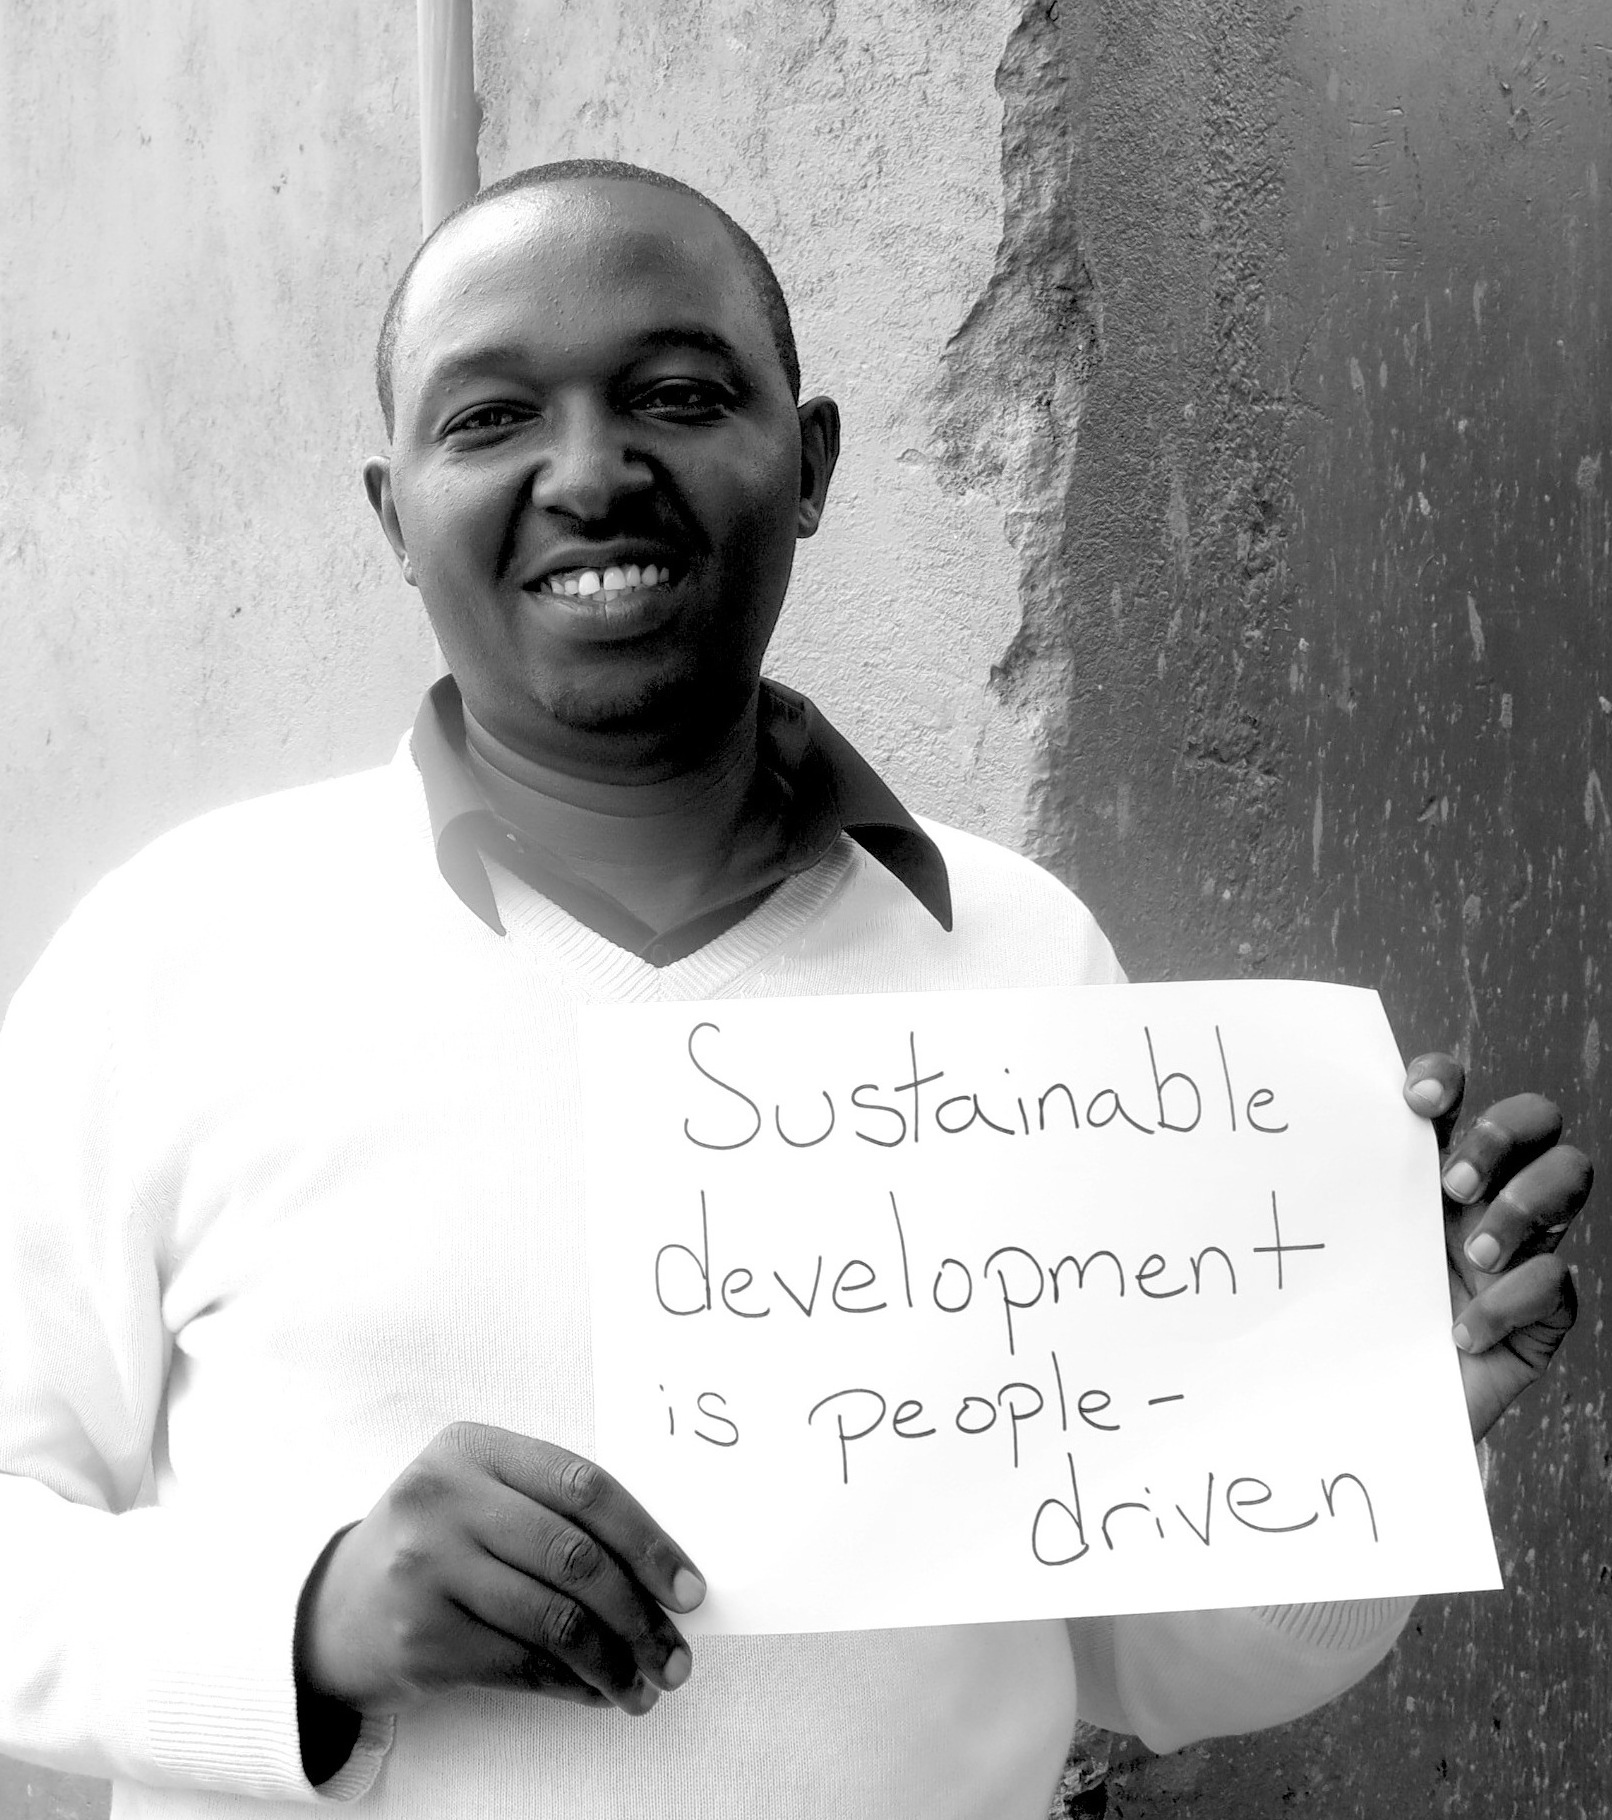 Sustainable
development
is people-
driven